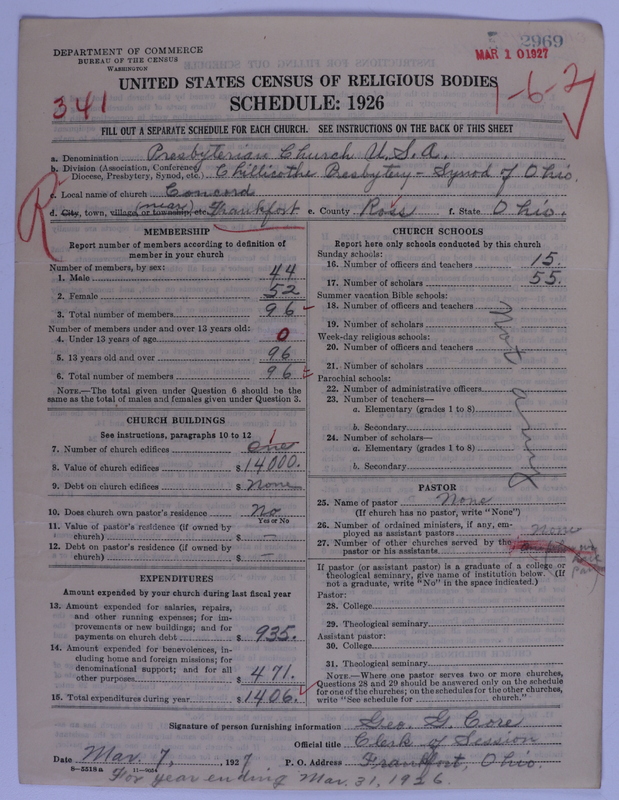 DEPARTMENT OF COMMERCE
BUREAU OF THE CENSUS
WASHINGTON
2969
MAR 10 1927
UNITED STATES CENSUS OF RELIGIOUS BODIES
SCHEDULE: 1926
341
1-6-2
FILL OUT A SEPARATE SCHEDULE FOR EACH CHURCH. SEE INSTRUCTIONS ON THE BACK OF THIS SHEET
a. Denomination Presbyterian Church U.S.A.
b. Division (Association, Conference, Diocese, Presbytery, Synod, etc.) Chillicothe Presbytery - Synod of Ohio.
c. Local name of church Concord
d. City, town, village, or township, etc. (near) Frankfort e. County Ross f. State Ohio.
R
MEMBERSHIP
Report number of members according to definition of
member in your church
Number of members, by sex:
1. Male 44
2. Female 52
3. Total number of members 96
Number of members under and over 13 years old:
4. Under 13 years of age 0
5. 13 years old and over 96
6. Total number of members 96
NOTE.—The total given under Question 6 should be the
same as the total of males and females given under Question 3.
CHURCH BUILDINGS
See instructions, paragraphs 10 to 12
7. Number of church edifices one 1
8. Value of church edifices $ 14000.
9. Debt on church edifices $ None
10. Does church own pastor's residence No
Yes or No
11. Value of pastor's residence (if owned by
church) $ —
12. Debt on pastor's residence (if owned by
church) $ —
EXPENDITURES
Amount expended by your church during last fiscal year
13. Amount expended for salaries, repairs,
and other running expenses; for im-
provements or new buildings; and for
payments on church debt $ 935.
14. Amount expended for benevolences, in-
cluding home and foreign missions; for
denominational support; and for all
other purposes $ 471.
15. Total expenditures during year $ 1406.
CHURCH SCHOOLS
Report here only schools conducted by this church
Sunday schools:
16. Number of officers and teachers 15.
17. Number of scholars 55.
Summer vacation Bible schools:
18. Number of officers and teachers
19. Number of scholars
Week-day religious schools:
20. Number of officers and teachers
21. Number of scholars
Parochial schools:
22. Number of administrative officers
23. Number of teachers—
a. Elementary (grades 1 to 8)
b. Secondary
24. Number of scholars—
a. Elementary (grades 1 to 8)
b. Secondary
Not any
PASTOR
25. Name of pastor None
(If church has no pastor, write "None")
26. Number of ordained ministers, if any, em-
ployed as assistant pastors None
27. Number of other churches served by the
pastor or his assistants
If pastor (or assistant pastor) is a graduate of a college or
theological seminary, give name of institution below. (If
not a graduate, write "No" in the space indicated.)
Pastor:
28. College
29. Theological seminary
Assistant pastor:
30. College
31. Theological seminary
NOTE.—Where one pastor serves two or more churches,
Questions 28 and 29 should be answered only on the schedule
for one of the churches; on the schedules for the other churches,
write "See schedule for church."
Signature of person furnishing information Geo. G. Core
Official title Clerk of Session
Date Mar. 7, 1927 P. O. Address Frankfort, Ohio.
8—5518 a 11—9054
For year ending Mar. 31, 1926